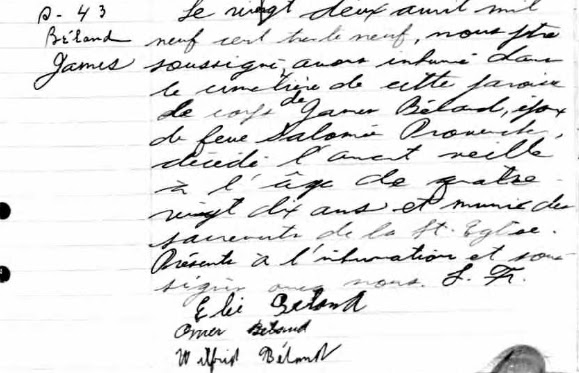 S-43
Béland
James
Le vingt deux avril mil
neuf cent trente neuf, nous ptre
soussigné, avons inhumé dans
le cimetière de cette paroisse
le corps de James Béland, époux
de feue Salomée Provencher,
décédé l'avant veille
à l'âge de quatre-
vingt dix ans et munie des
sacrements de la St. Eglise.
Présents à l'inhumation et sous-
signés avec nous. L. Fr.
Elie Béland
Omer Béland
Wilfrid Béland